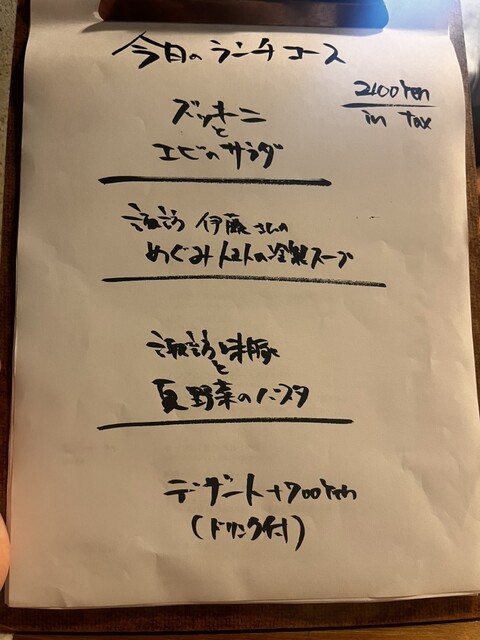 今日のランチコース
2400Yen
in tax
ズッキーニ
と
エビのサラダ
諏訪 伊藤さんの
めぐみトマトの冷製スープ
諏訪味豚
と
夏野菜のパスタ
デザート+700Yen
(ドリンク付)